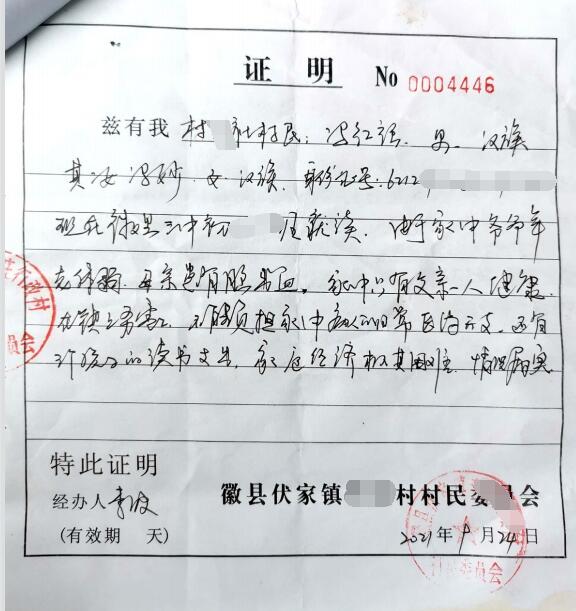 证明 No 0004446
兹有我 村 社村民：冯红强，男，汉族
其女冯妙，女，汉族，身份证号：6212
现在徽县三中初 就读，由于家中爷爷年
老体弱，母亲患有脑出血，家中只有父亲一人健康
家中 的日常医疗开支，还有
孩子的读书支出，家庭经济极其困难，情况属实
特此证明
经办人
(有效期 天)
徽县伏家镇 村村民委员会
2021年9月24日
村
员会
委员会